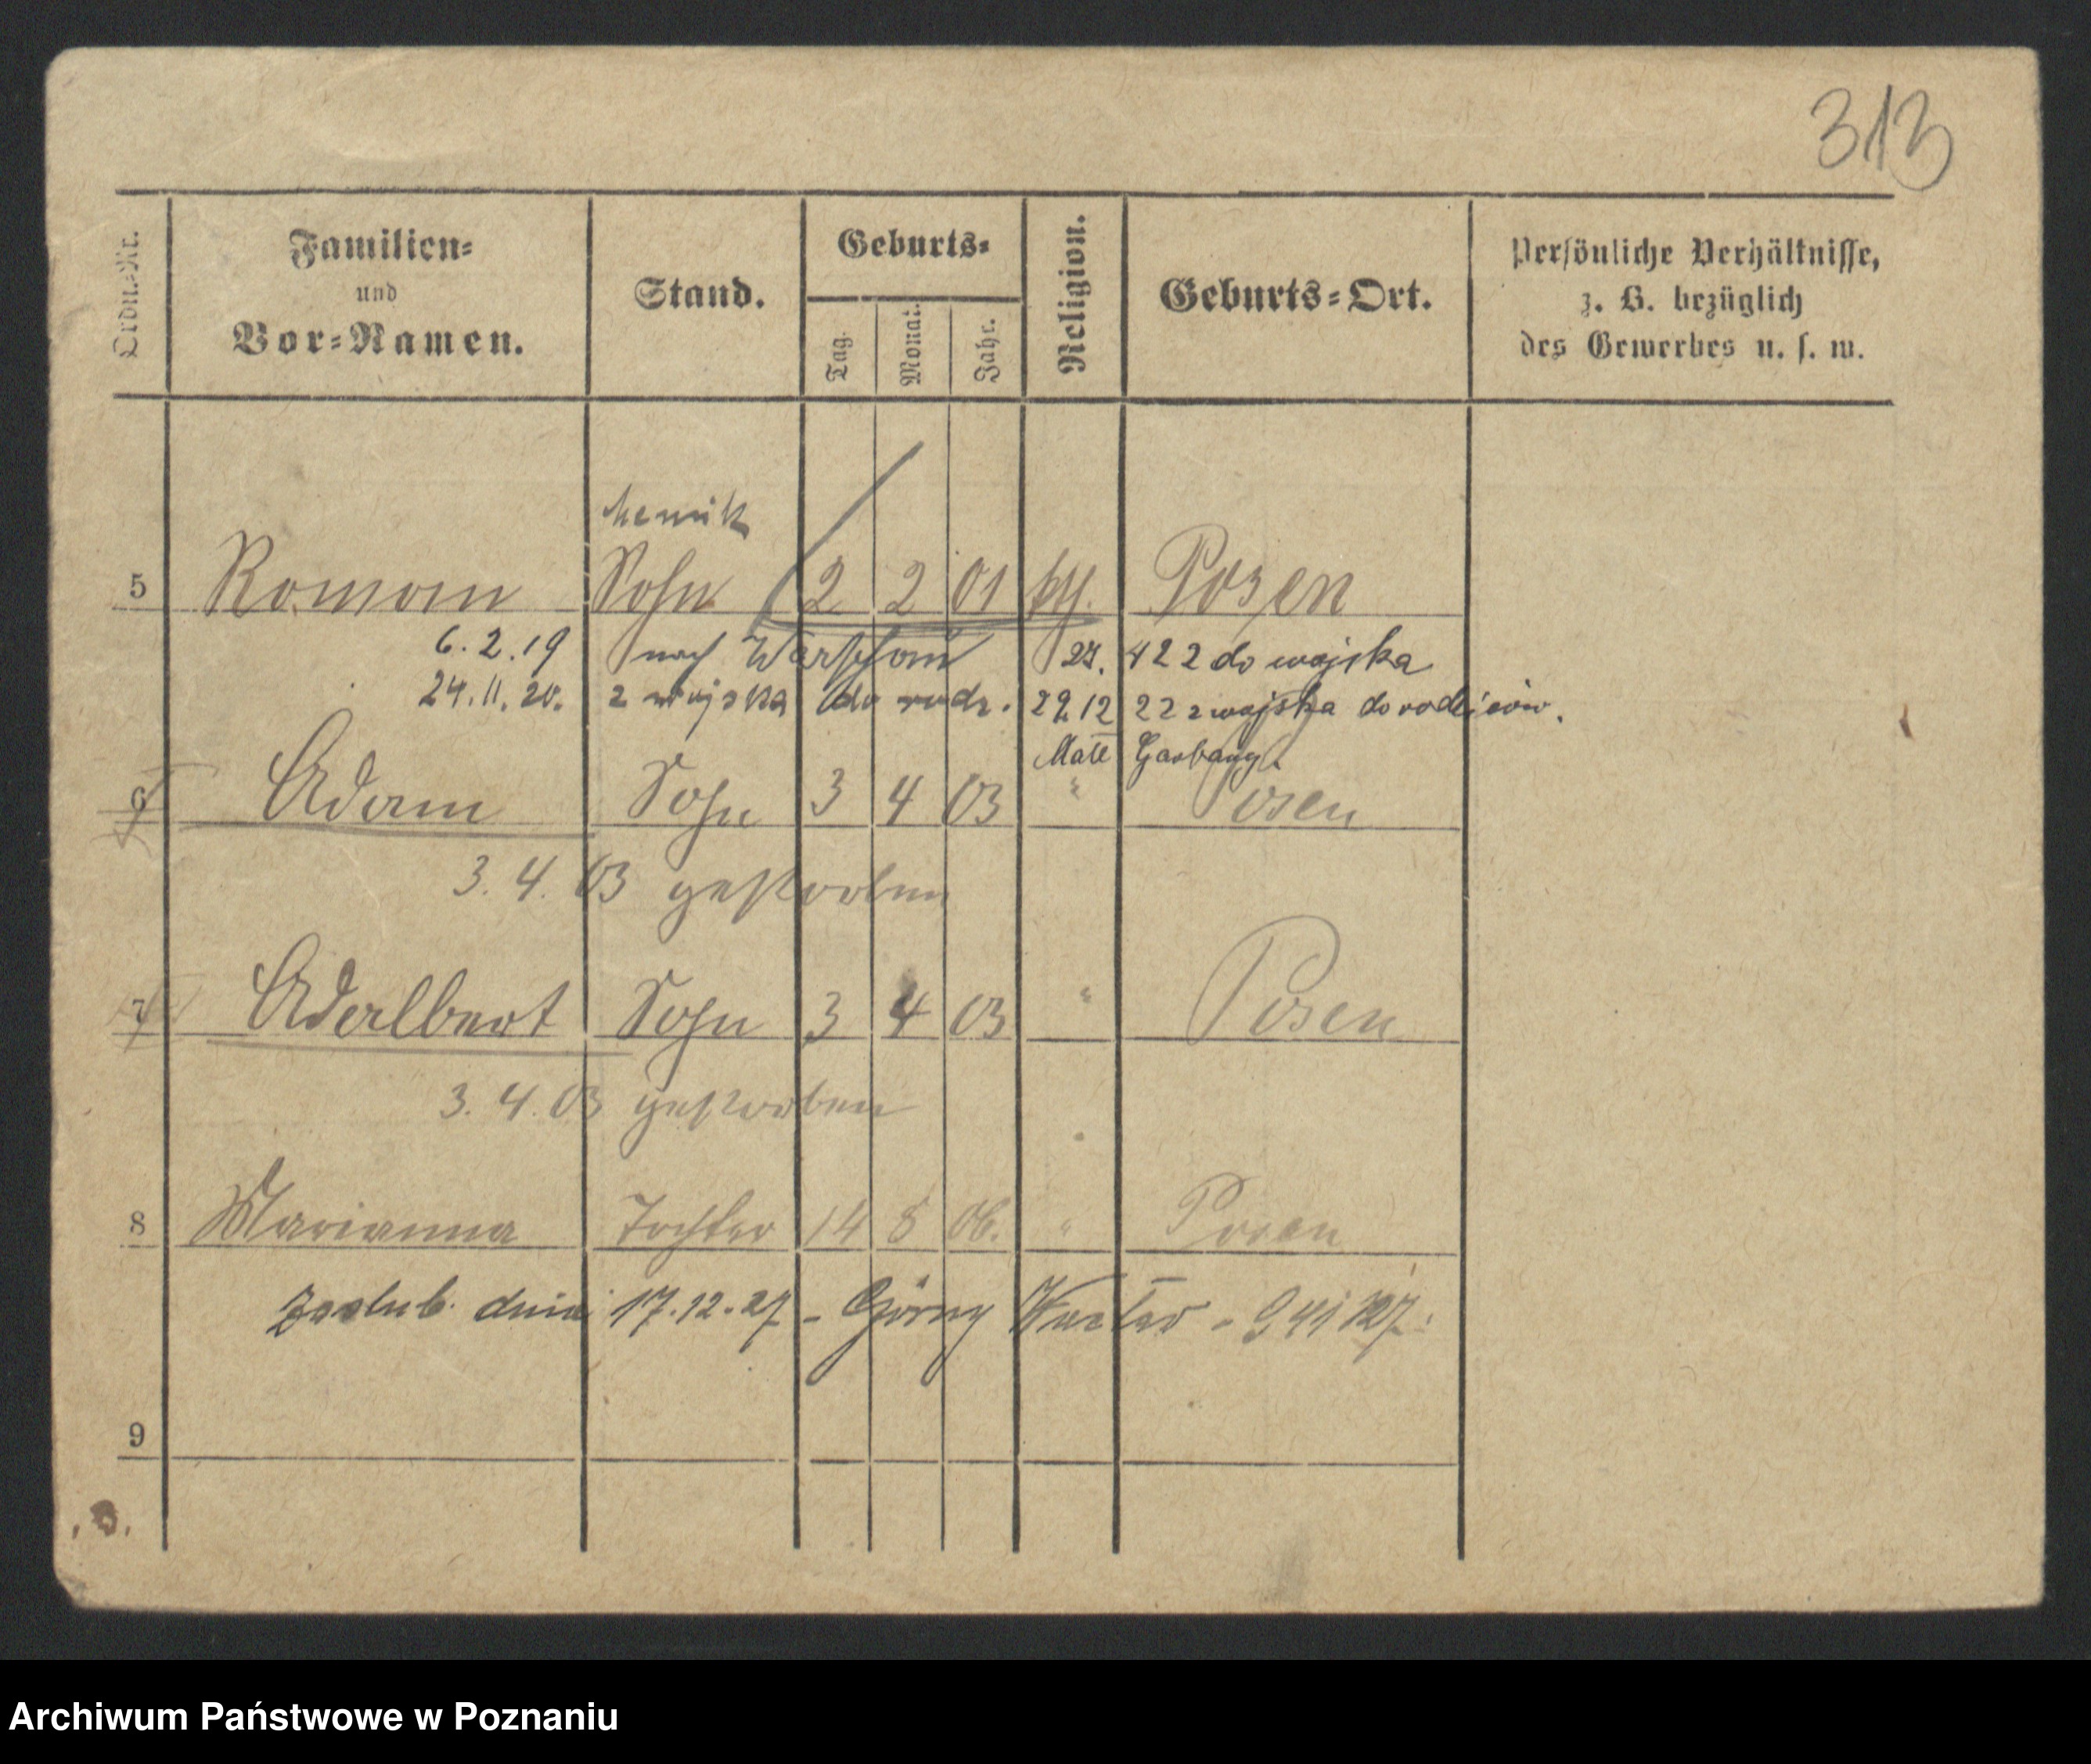 313
Ordn.-Nr.
Familien-
und
Vor-Namen.
Stand.
Geburts-
Tag.
Monat.
Jahr.
Religion.
Geburts-Ort.
Persönliche Verhältnisse,
z. B. bezüglich
des Gewerbes u. s. w.
5 Roman Sohn 2 2 01 Posen
6.2.19 nach Warschau 27. 4 22 do wojska
24.11.20. z wojska do rodz. 29 12 22 z wojska do rodziców.
Małe Garbary
6 Adam Sohn 3 4 03 " Posen
3.4.03 gestorben
7 Adalbert Sohn 3 4 03 " Posen
3.4.03 gestorben
8 Marianna Tochter 14 8 06. " Posen
zaślub. dnia 17.12.27 - Górny
9
Archiwum Państwowe w Poznaniu